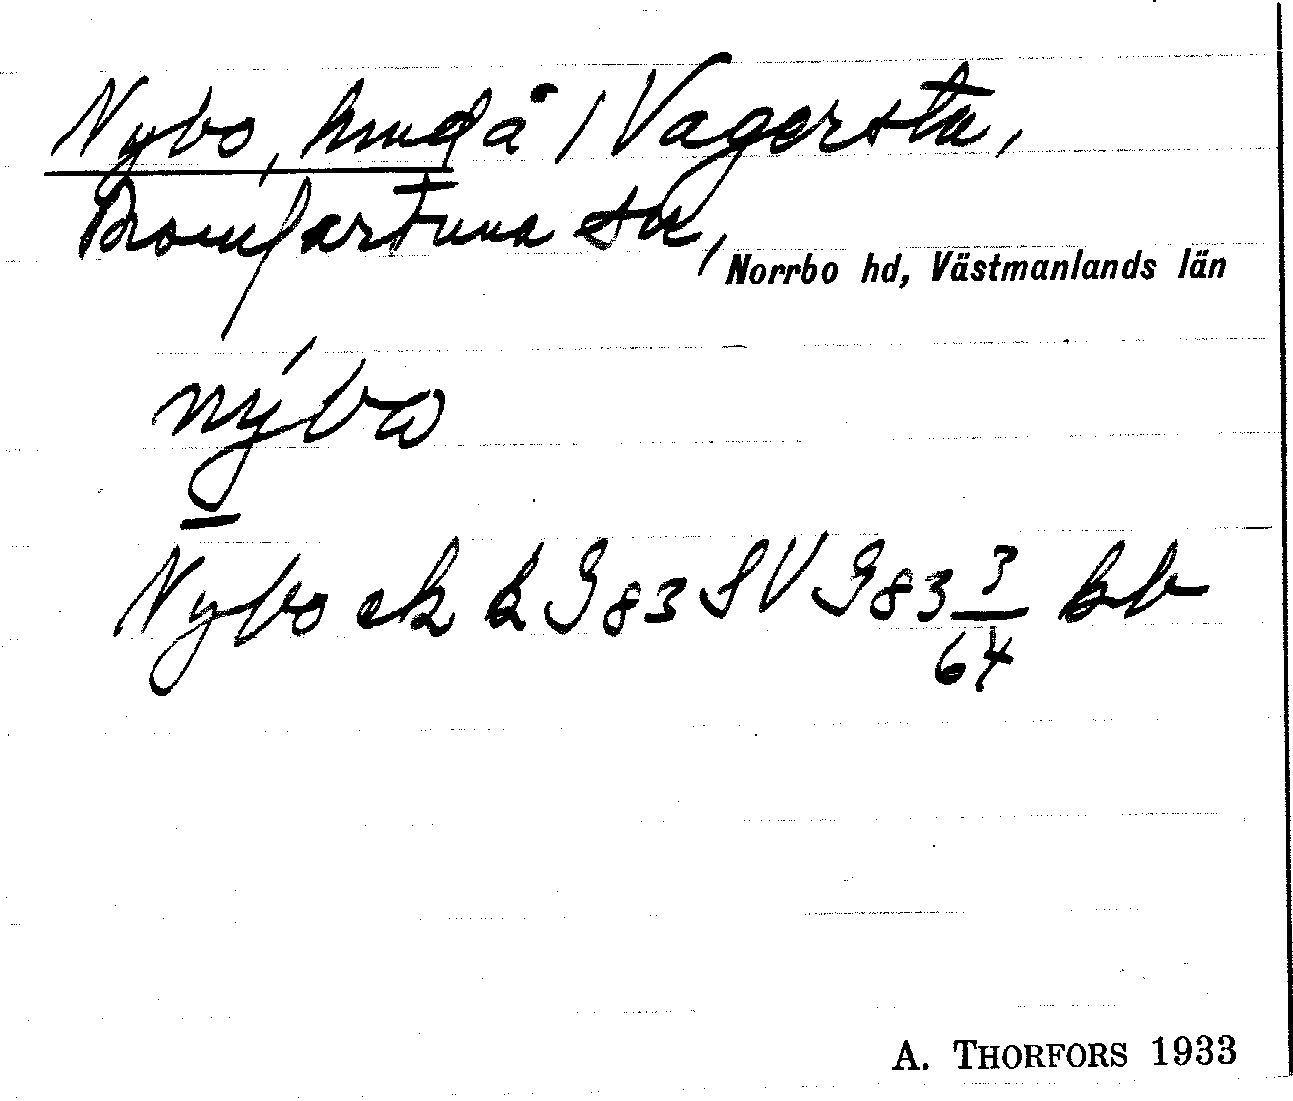 Nybo, hmd å / Vagersta,
Romfartuna sn,
Norrbo hd, Västmanlands län
nýbω
Nybo ek k G 83 SV G 83 3/64 bb
A. THORFORS 1933